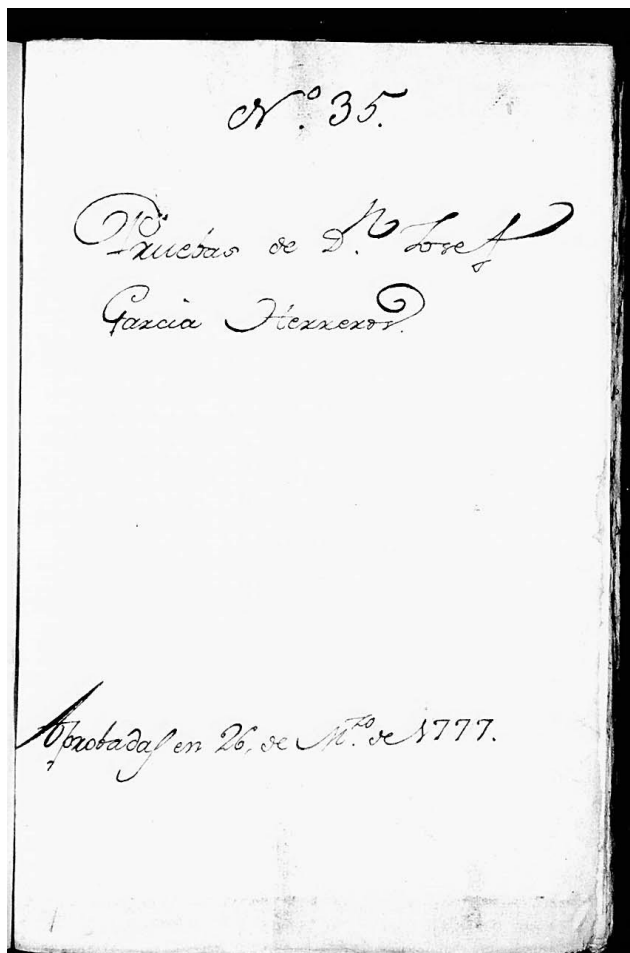 N.º 35.
Pruebas de D.ⁿ Josef
Garcia Herreros.
Aprobadas en 26, de M.ᶻº de 1777.